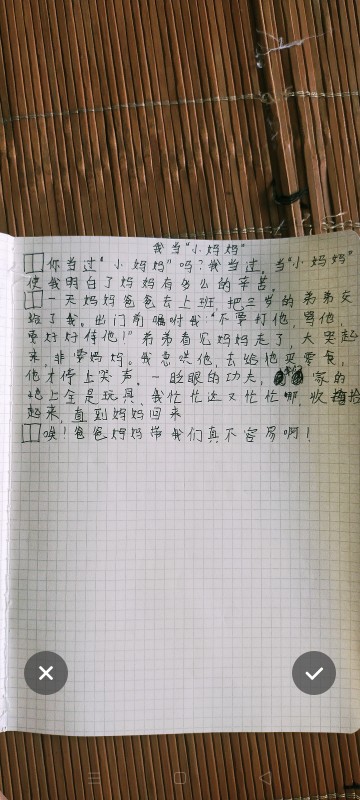 我当“小妈妈”
你当过“小妈妈”吗？我当过。当“小妈妈”
使我明白了妈妈有多么的辛苦。
一天妈妈爸爸去上班，把三岁的弟弟交
给了我。出门前嘱咐我：“不要打他，骂他，
要好好待他！”弟弟看见妈妈走了，大哭起
来，非要妈妈。我急哄他，去给他买零食，
他才停止哭声。一眨眼的功夫，家的
地上全是玩具，我忙忙这又忙忙哪，收拾
起来，直到妈妈回来
唉！爸爸妈妈带我们真不容易啊！